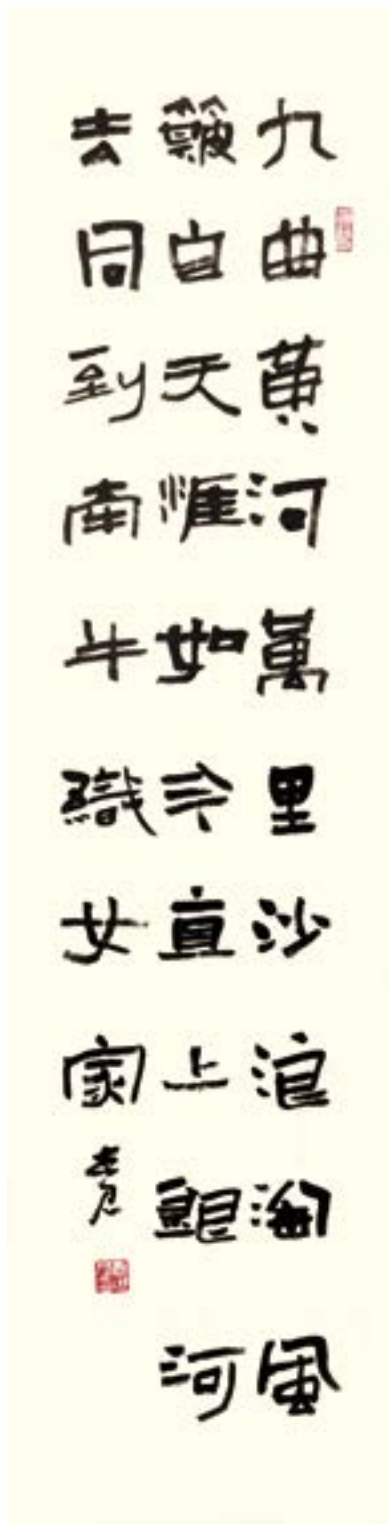 九曲黄河萬里沙浪淘風
簸自天涯如今直上銀河
去同到牽牛織女家